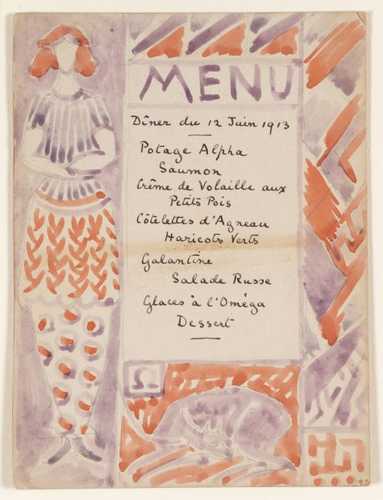 MENU
Dîner du 12 Juin 1913
Potage Alpha
Saumon
Crême de Volaille aux
Petits Pois
Côtelettes d'Agneau
Haricots Verts
Galantine
Salade Russe
Glaces à l'Oméga
Dessert